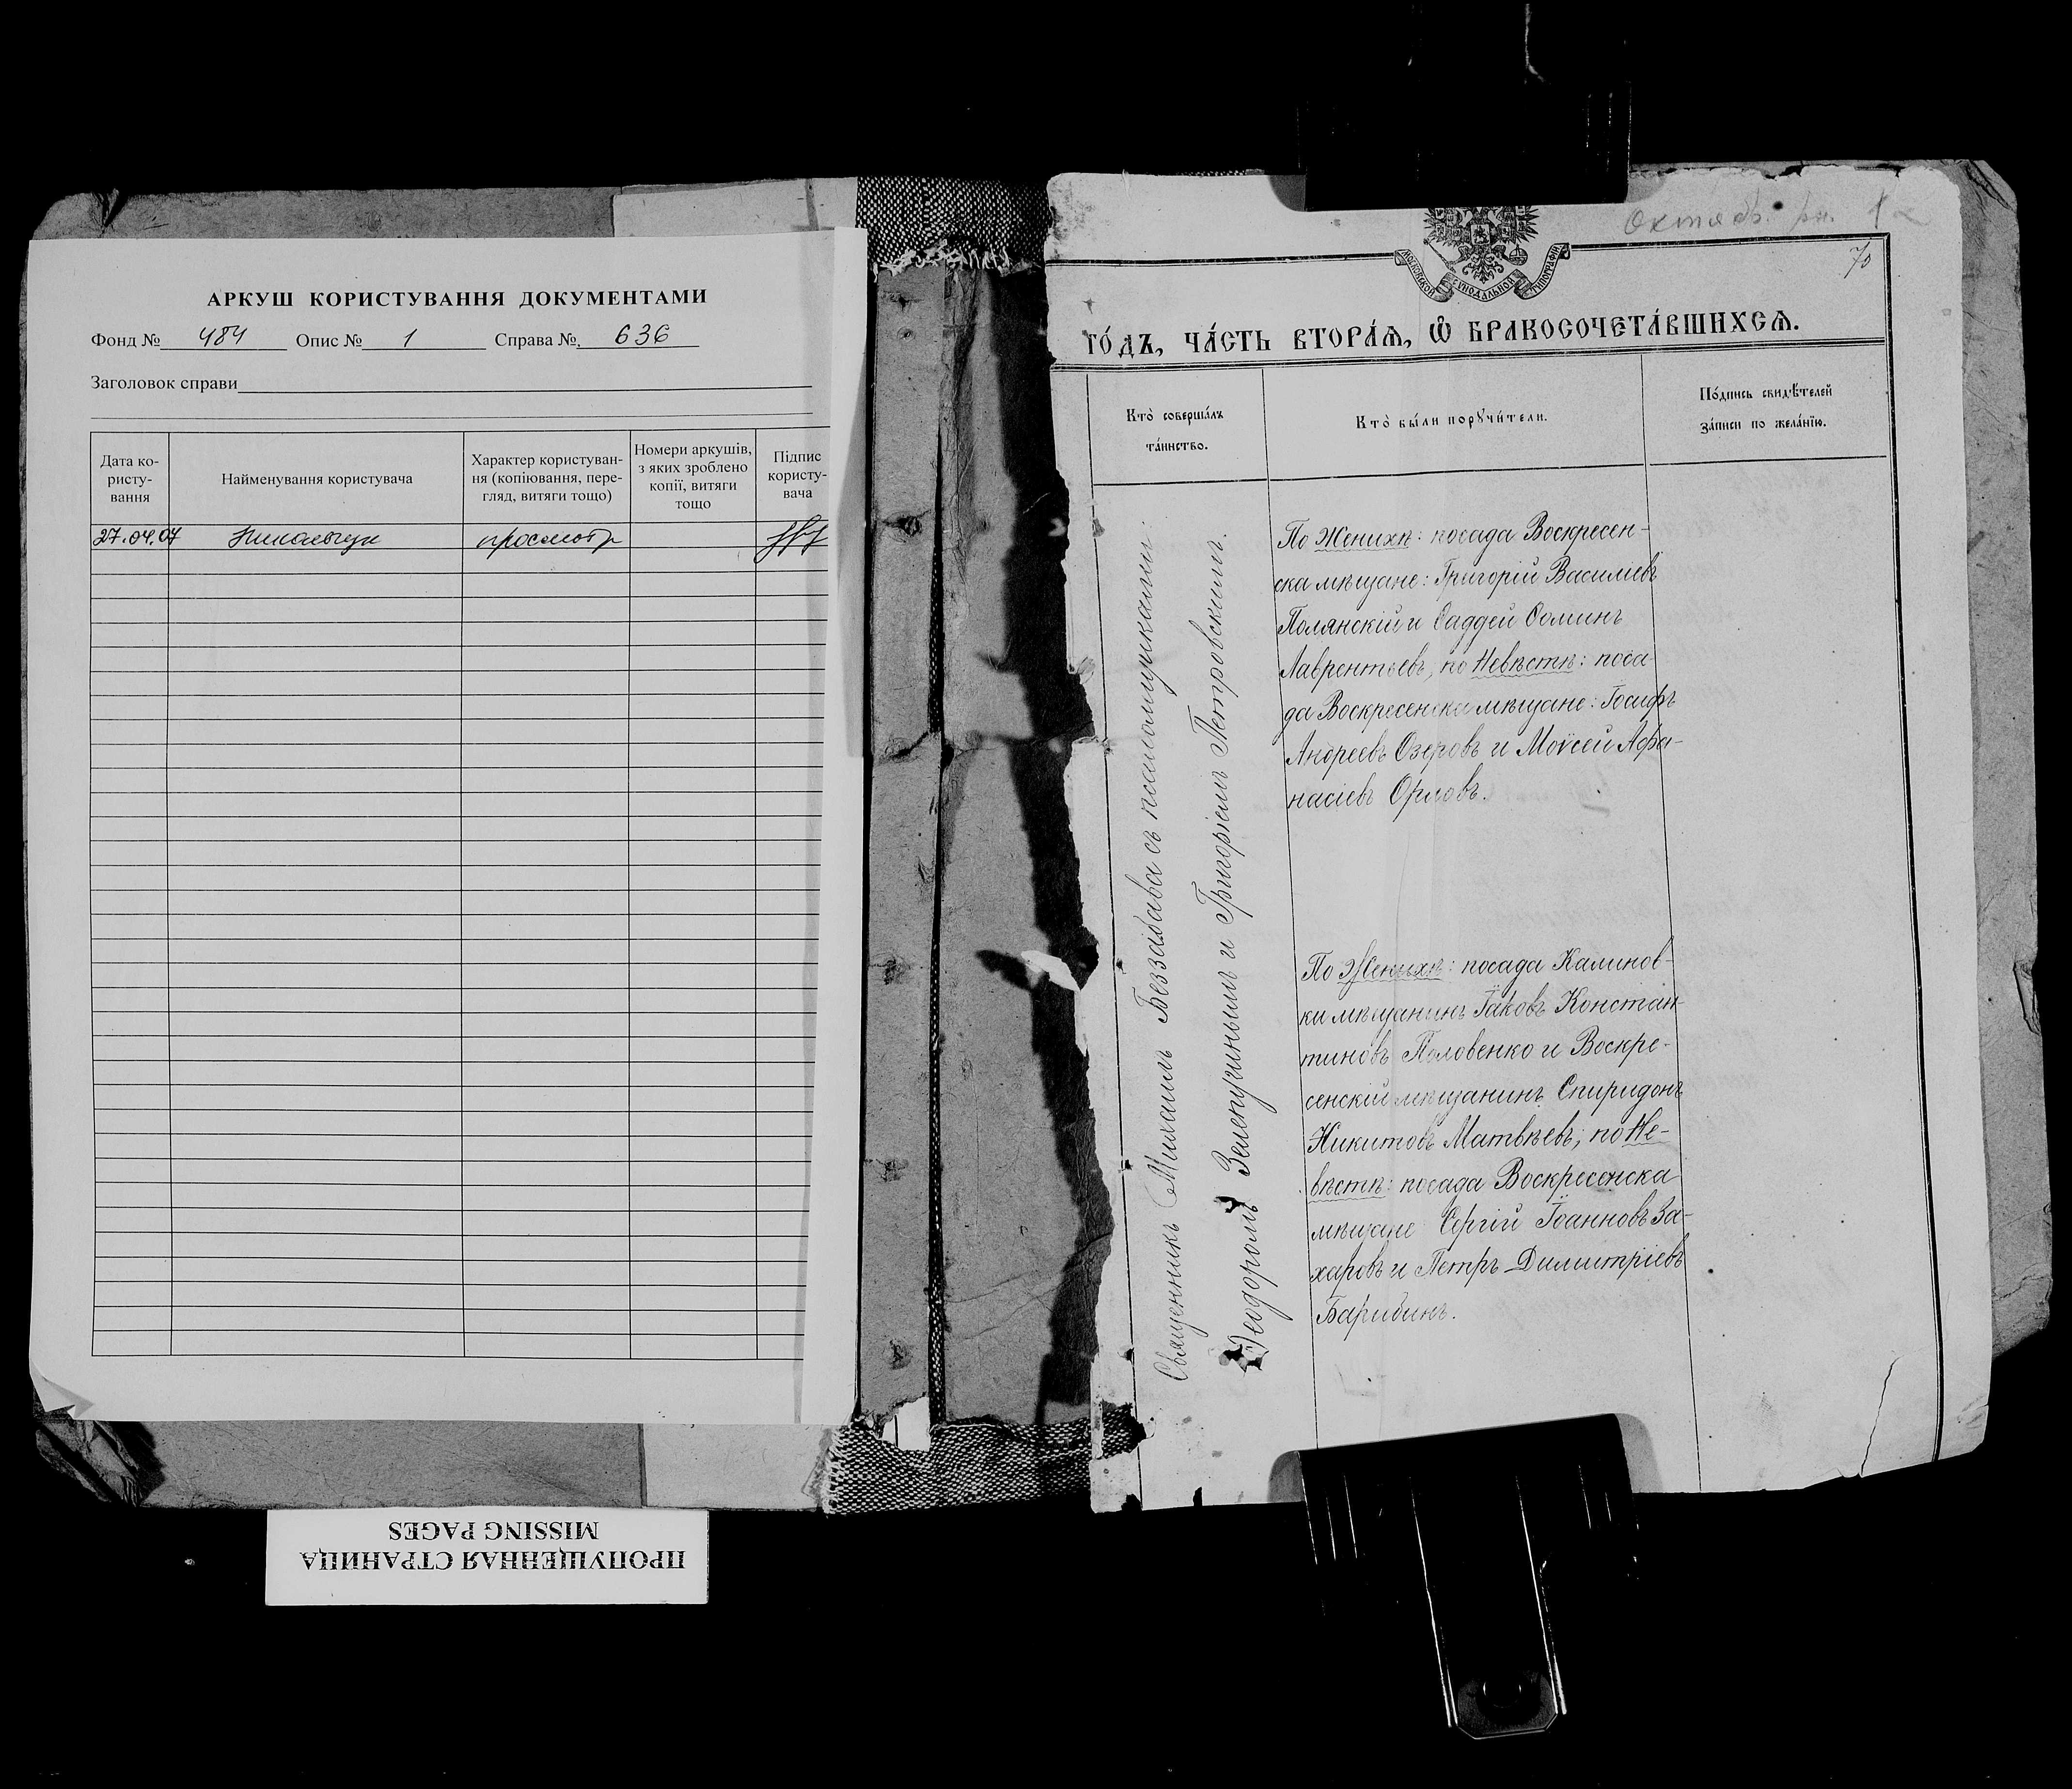 АРКУШ КОРИСТУВАННЯ ДОКУМЕНТАМИ
Фонд № 484 Опис № 1 Справа № 636
Заголовок справи
Дата ко-
ристу-
вання
Найменування користувача
Характер користуван-
ня (копіювання, пере-
гляд, витяги тощо)
Номери аркушів,
з яких зроблено
копії, витяги
тощо
Підпис
користу-
вача
27.04.07 просмотр
ПРОПУЩЕННАЯ СТРАНИЦА
MISSING PAGES
Октябр. рн.
МОСКОВСКОЙ СУНОДАЛЬНОЙ ТИПОГРАФІИ
70
го́дъ, ча́сть втора́ѧ, ѡ҆ бракосочета́вшихсѧ.
Кто̀ соверша́лъ
та́инство.
Кто̀ бы́ли порꙋчи́тели.
По́дпись свидѣ́телей
за́писи по жела́нїю.
Священникъ Михаилъ Беззабава съ псаломщиками:
Ѳеодоромъ Зелепугинымъ и Григоріемъ Петровскимъ.
По Женихѣ: посада Воскресен-
ска мѣщане: Григорій Василіевъ
Полянскій и Ѳаддей Ѳоминъ
Лаврентьевъ, по Невѣстѣ: поса-
да Воскресенска мѣщане: Іосифъ
Андреевъ Озеровъ и Моѵсей Афа-
насіевъ Орловъ.
По Женихѣ: посада Калинов-
ки мѣщанинъ Іаковъ Констан-
тиновъ Половенко и Воскре-
сенскій мѣщанинъ Спиридонъ
Никитовъ Матвѣевъ, по Не-
вѣстѣ: посада Воскресенска
мѣщане Сергій Іоанновъ За-
харовъ и Петръ Димитріевъ
Барибинъ.